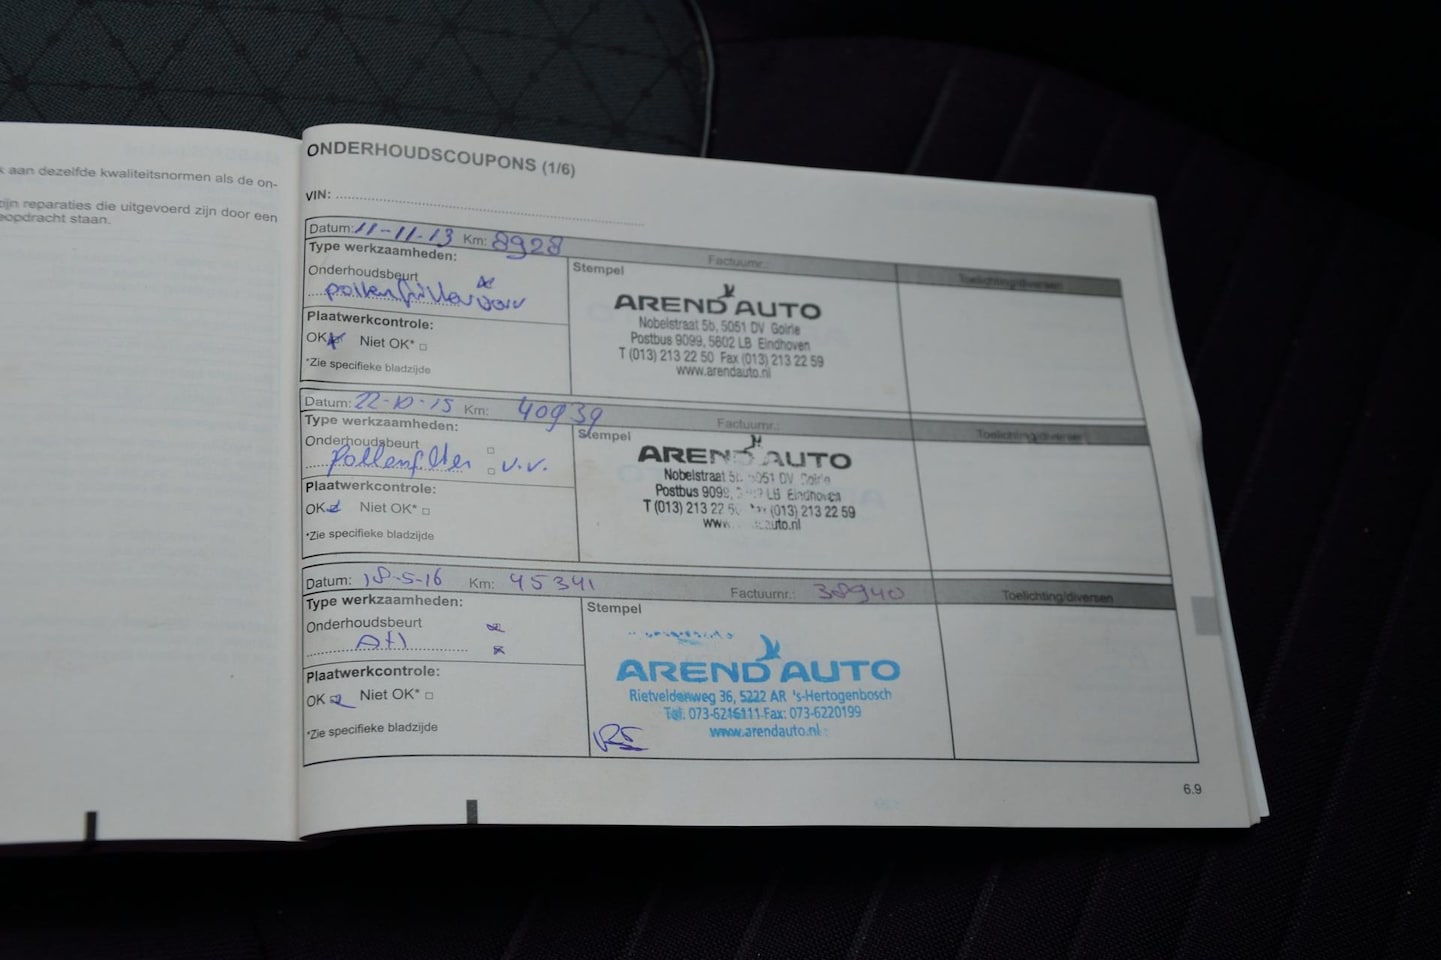 k aan dezelfde kwaliteitsnormen als de on-
zijn reparaties die uitgevoerd zijn door een
eopdracht staan.
ONDERHOUDSCOUPONS (1/6)
VIN:
Datum: 11-11-13 Km: 8928 Factuurnr. Toelichting/diversen
Type werkzaamheden:
Stempel
Onderhoudsbeurt
pollenfilter
Plaatwerkcontrole:
OK Niet OK*
*Zie specifieke bladzijde
AREND AUTO
Nobelstraat 5b, 5051 DV Goirle
Postbus 9099, 5602 LB Eindhoven
T (013) 213 22 50 Fax (013) 213 22 59
www.arendauto.nl
Datum: 22-10-15 Km: 40939 Factuurnr.: Toelichting/diversen
Type werkzaamheden:
Stempel
Onderhoudsbeurt
Pollenfilter v.v.
Plaatwerkcontrole:
OK Niet OK*
*Zie specifieke bladzijde
AREND AUTO
Nobelstraat 5b, 5051 DV Goirle
Postbus 9099, LB Eindhoven
T (013) 213 22 (013) 213 22 59
Datum: 18-5-16 Km: 45341 Factuurnr.: 38940 Toelichting/diversen
Type werkzaamheden:
Stempel
Onderhoudsbeurt
Plaatwerkcontrole:
OK Niet OK*
*Zie specifieke bladzijde
AREND AUTO
Rietveldenweg 36, 5222 AR 's-Hertogenbosch
Tel: 073-6216111 Fax: 073-6220199
www.arendauto.nl
6.9